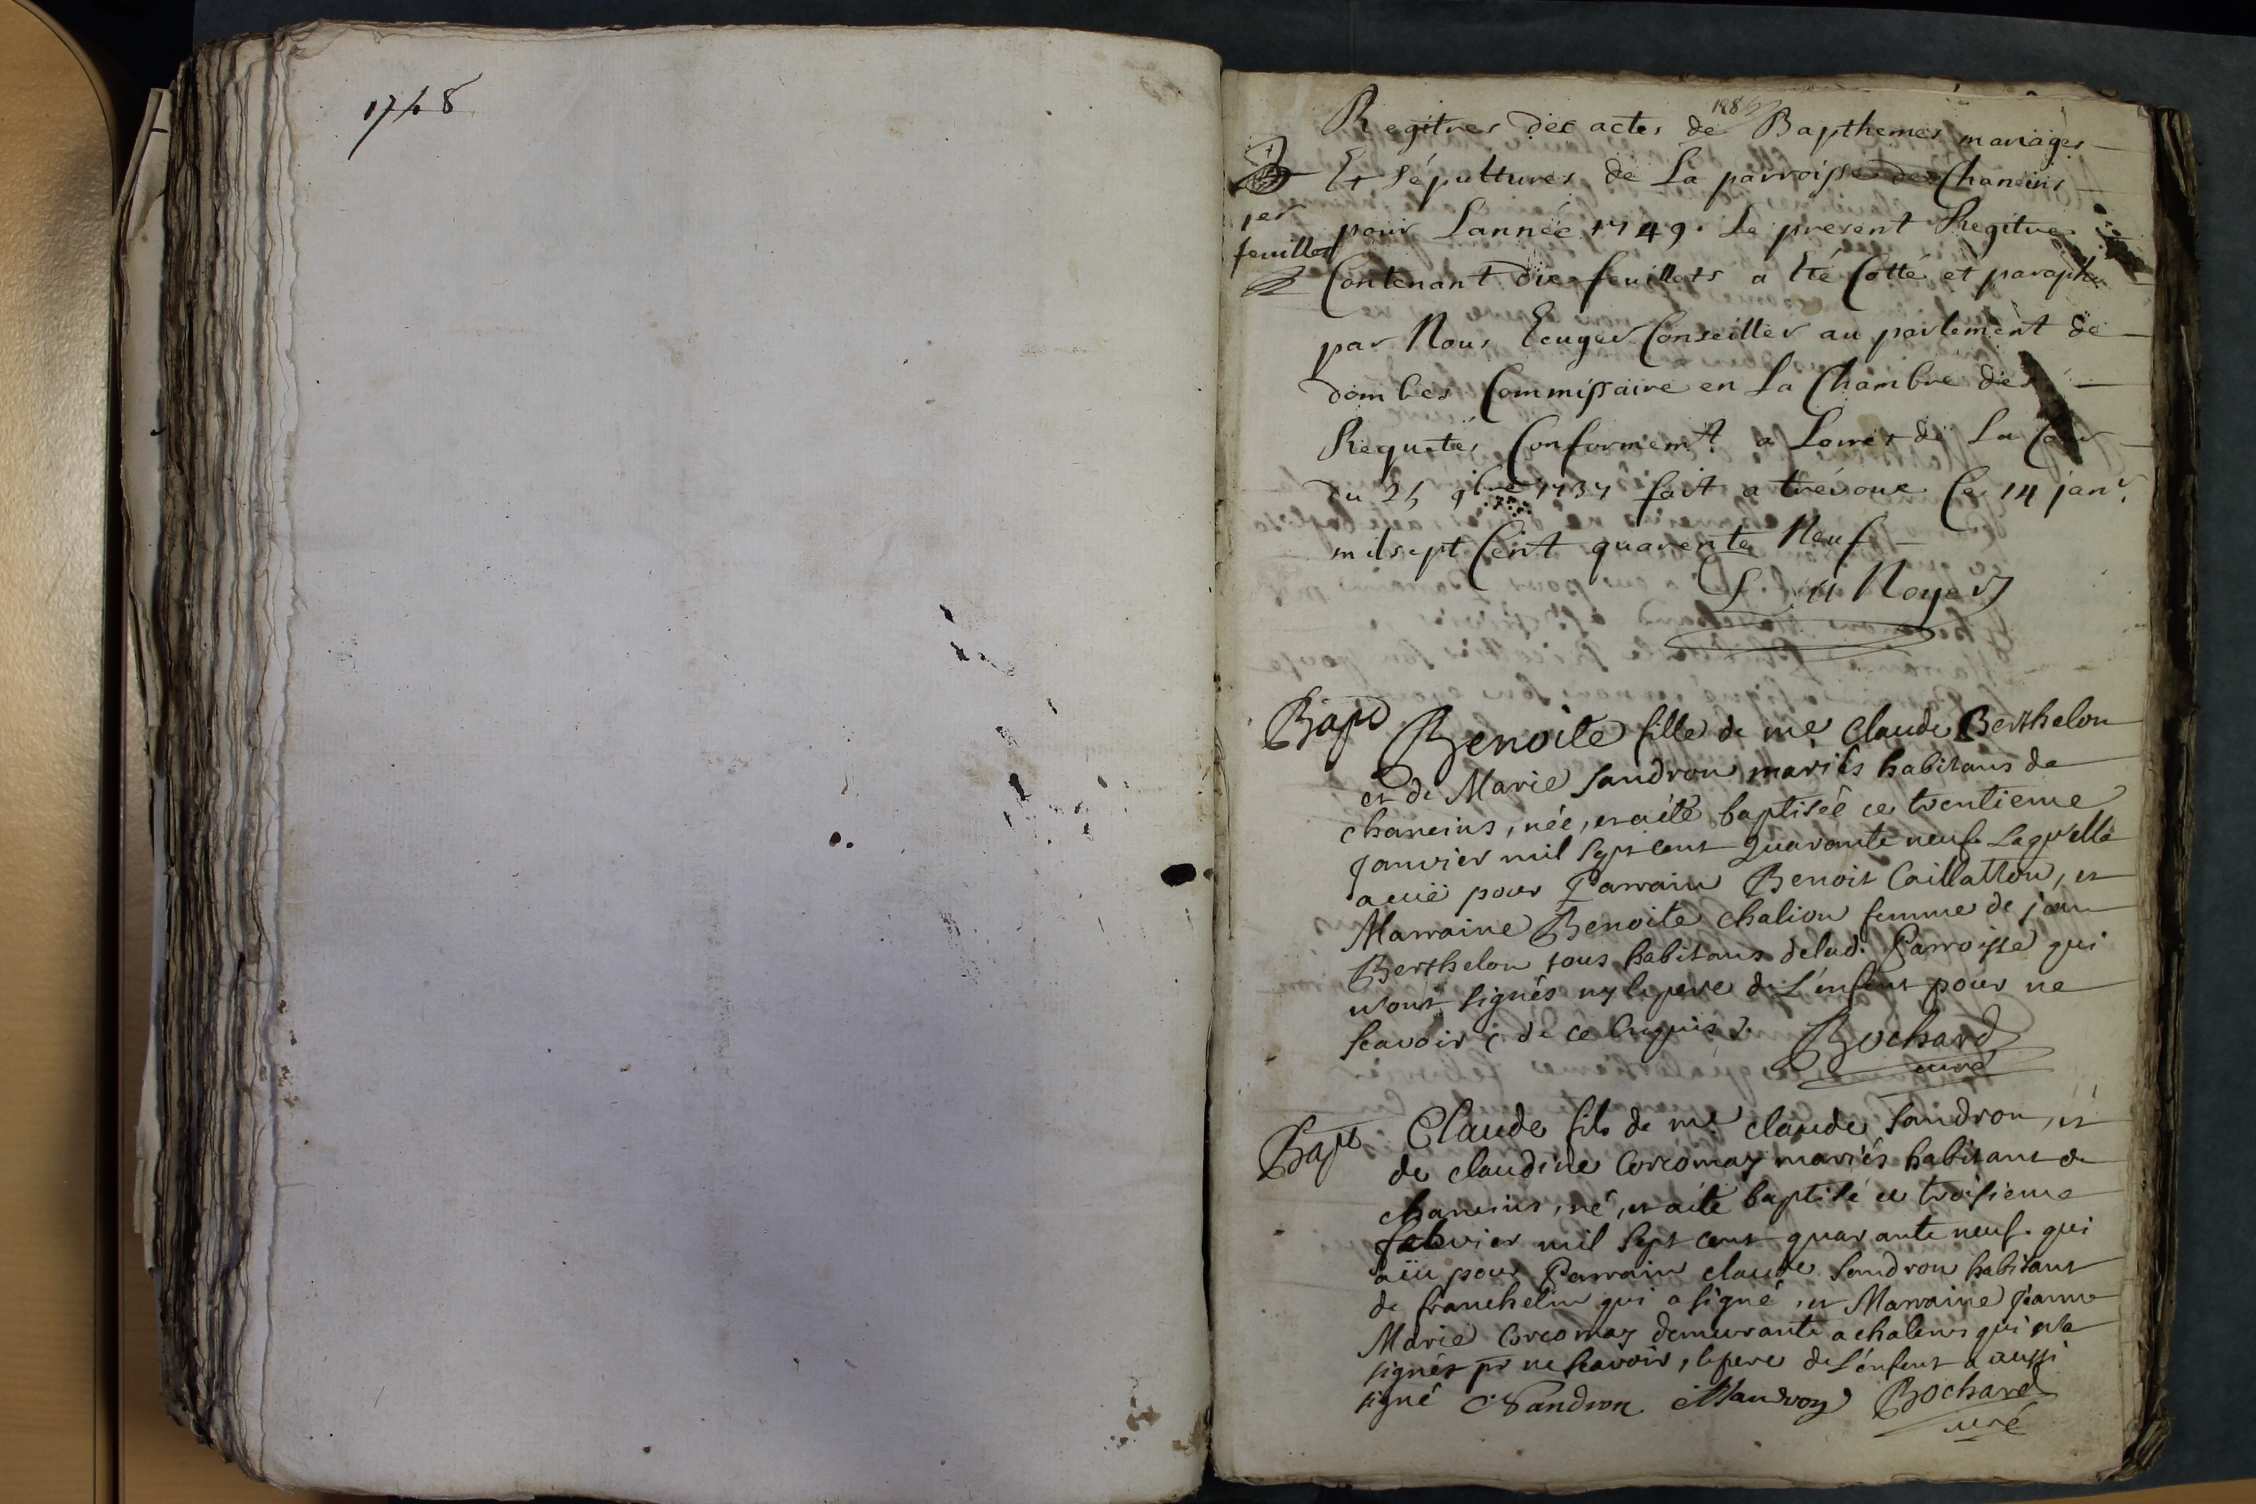 1748
188
Regitres des actes de Bapthemes mariages
Et sépultures de La parroisse de Chaneins
1er
feuillet
pour Lannéé 1749. Le present Regitre
Contenant dix feuillets a Eté Cotté et paraphé
par Nous Conseiller au parlement de
dombes Commissaire en La Chambre des
Requetes Conformemt. a Larret de La Cour
du 25 9bre 1737 fait a trévoux Ce 14 janv.
mil sept Cent quarente Neuf
Noyer
Bapt
Benoite fille de me Claude Berthelon
et de Marie Sandron mariés habitans de
chaneins, néé, et a été baptiséé ce trentieme
Janvier mil sept cent quarante neuf. Laquelle
a euë pour Parrain Benoit Caillatton, et
Marraine Benoite chalion femme de jean
Berthelon tous habitans de lad. Parroisse qui
n'ont signés ny le pere de L'enfent pour ne
scavoir de ce Enquis.
Bochard
curé
Bapt
Claude fils de me claude Sandron, et
de claudine Corcomay mariés habitant de
chaneins, né, et a été baptisé ce troisieme
febvier mil sept cent quarante neuf. qui
a ëu pour Parrain claude Sandron habitant
de franchelin qui a signé, et Marraine jeanne
Marie Corcomay demeurante a chaleins qui n'a
signés pr ne scavoir, le pere de L'enfent a aussi
signé C Sandron Sandron Bochard
curé